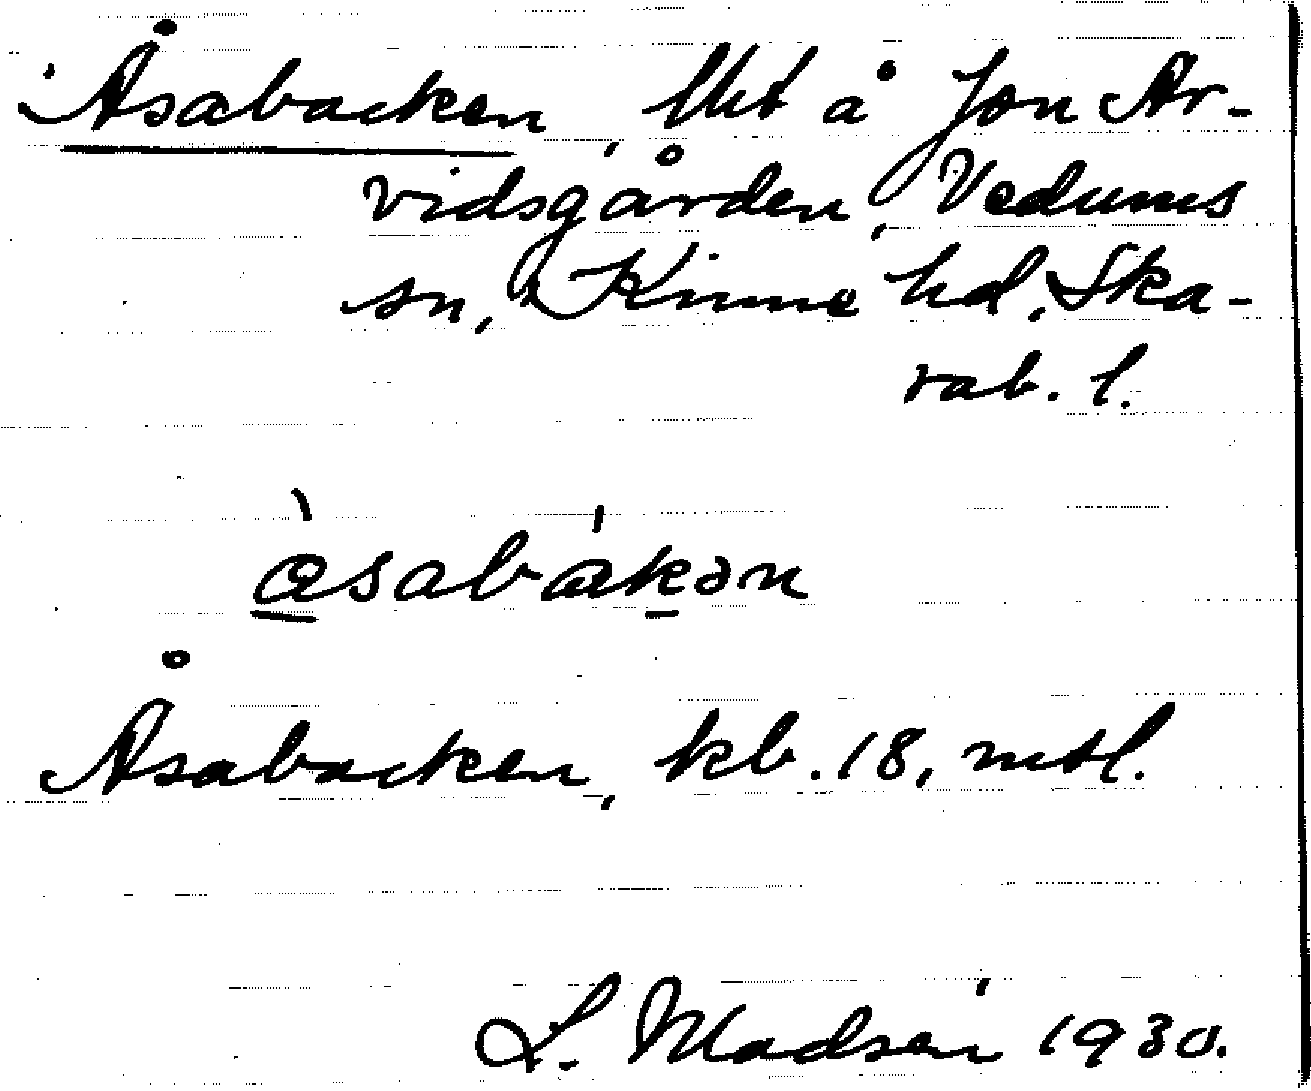 Åsabacken, lht å Jon Ar-
vidsgården, Vedums
sn, Kinne hd, Ska-
rab. l.
åsabakən
Åsabacken, kb. 18, mtl.
L. Madsén 1930.